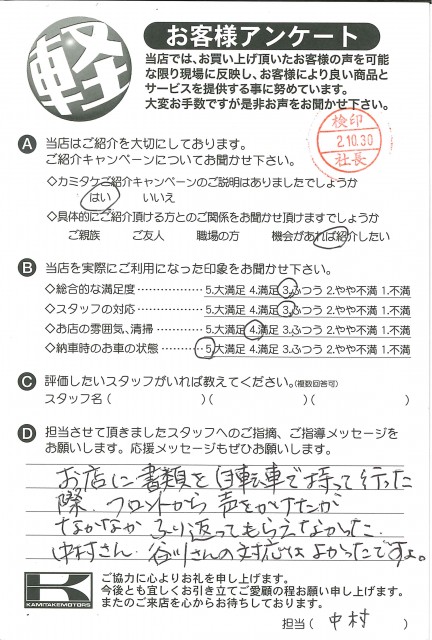 軽
お客様アンケート
当店では、お買い上げ頂いたお客様の声を可能
な限り現場に反映し、お客様により良い商品と
サービスを提供する事に努めています。
大変お手数ですが是非お声をお聞かせ下さい。
検印
2.10.30
社長
A 当店はご紹介を大切にしております。
ご紹介キャンペーンについてお聞かせ下さい。
◇カミタケご紹介キャンペーンのご説明はありましたでしょうか
はい いいえ
◇具体的にご紹介頂ける方とのご関係をお聞かせ頂けますでしょうか
ご親族 ご友人 職場の方 機会があれば紹介したい
B 当店を実際にご利用になった印象をお聞かせ下さい。
◇総合的な満足度 …………… 5.大満足 4.満足 3.ふつう 2.やや不満 1.不満
◇スタッフの対応 …………… 5.大満足 4.満足 3.ふつう 2.やや不満 1.不満
◇お店の雰囲気、清掃 ……… 5.大満足 4.満足 3.ふつう 2.やや不満 1.不満
◇納車時のお車の状態 ……… 5.大満足 4.満足 3.ふつう 2.やや不満 1.不満
C 評価したいスタッフがいれば教えてください。(複数回答可)
スタッフ名( )( )( )
D 担当させて頂きましたスタッフへのご指摘、ご指導メッセージを
お願いします。応援メッセージもぜひお願いします。
お店に書類を自転車で持って行った
際、フロントから声をかけたが
なかなかふり返ってもらえなかった.
中村さん、谷川さんの対応はよかったですよ。
K
KAMITAKEMOTORS
ご協力に心よりお礼を申し上げます。
今後とも宜しくお引き立てご愛顧の程お願い申し上げます。
またのご来店を心からお待ちしております。
担当( 中村 )